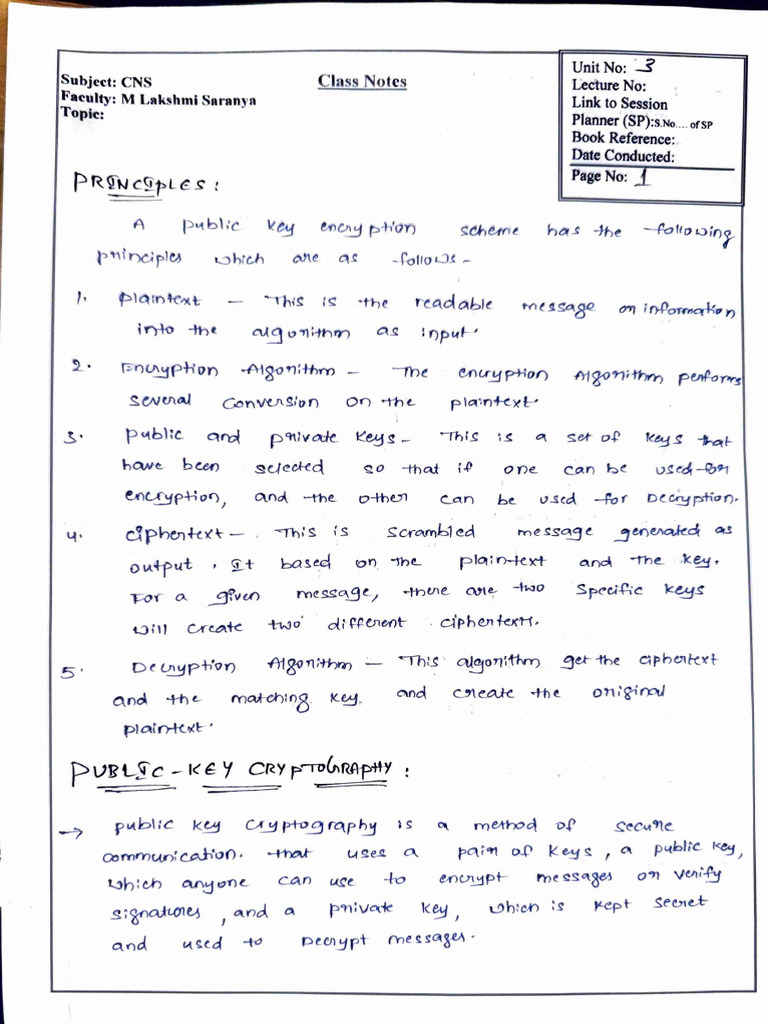 Subject: CNS
Faculty: M Lakshmi Saranya
Topic:
Class Notes
Unit No: 3
Lecture No:
Link to Session
Planner (SP):S.No.... of SP
Book Reference:
Date Conducted:
Page No: 1
PRINCIPLES:
A public key encryption scheme has the following
principles which are as follows-
1. Plaintext - This is the readable message or information
into the algorithm as input.
2. Encryption Algorithm - The encryption Algorithm performs
several conversion on the plaintext.
3. Public and private keys - This is a set of keys that
have been selected so that if one can be used for
encryption, and the other can be used for Decryption.
4. Ciphertext - This is scrambled message generated as
output. It based on the plaintext and the key.
For a given message, there are two specific keys
will create two different ciphertexts.
5. Decryption Algorithm - This algorithm get the ciphertext
and the matching key and create the original
plaintext.
PUBLIC-KEY CRYPTOGRAPHY:
→ Public key cryptography is a method of secure
communication. that uses a pair of keys, a public key,
which anyone can use to encrypt messages or verify
signatures, and a private key, which is kept secret
and used to Decrypt messages.